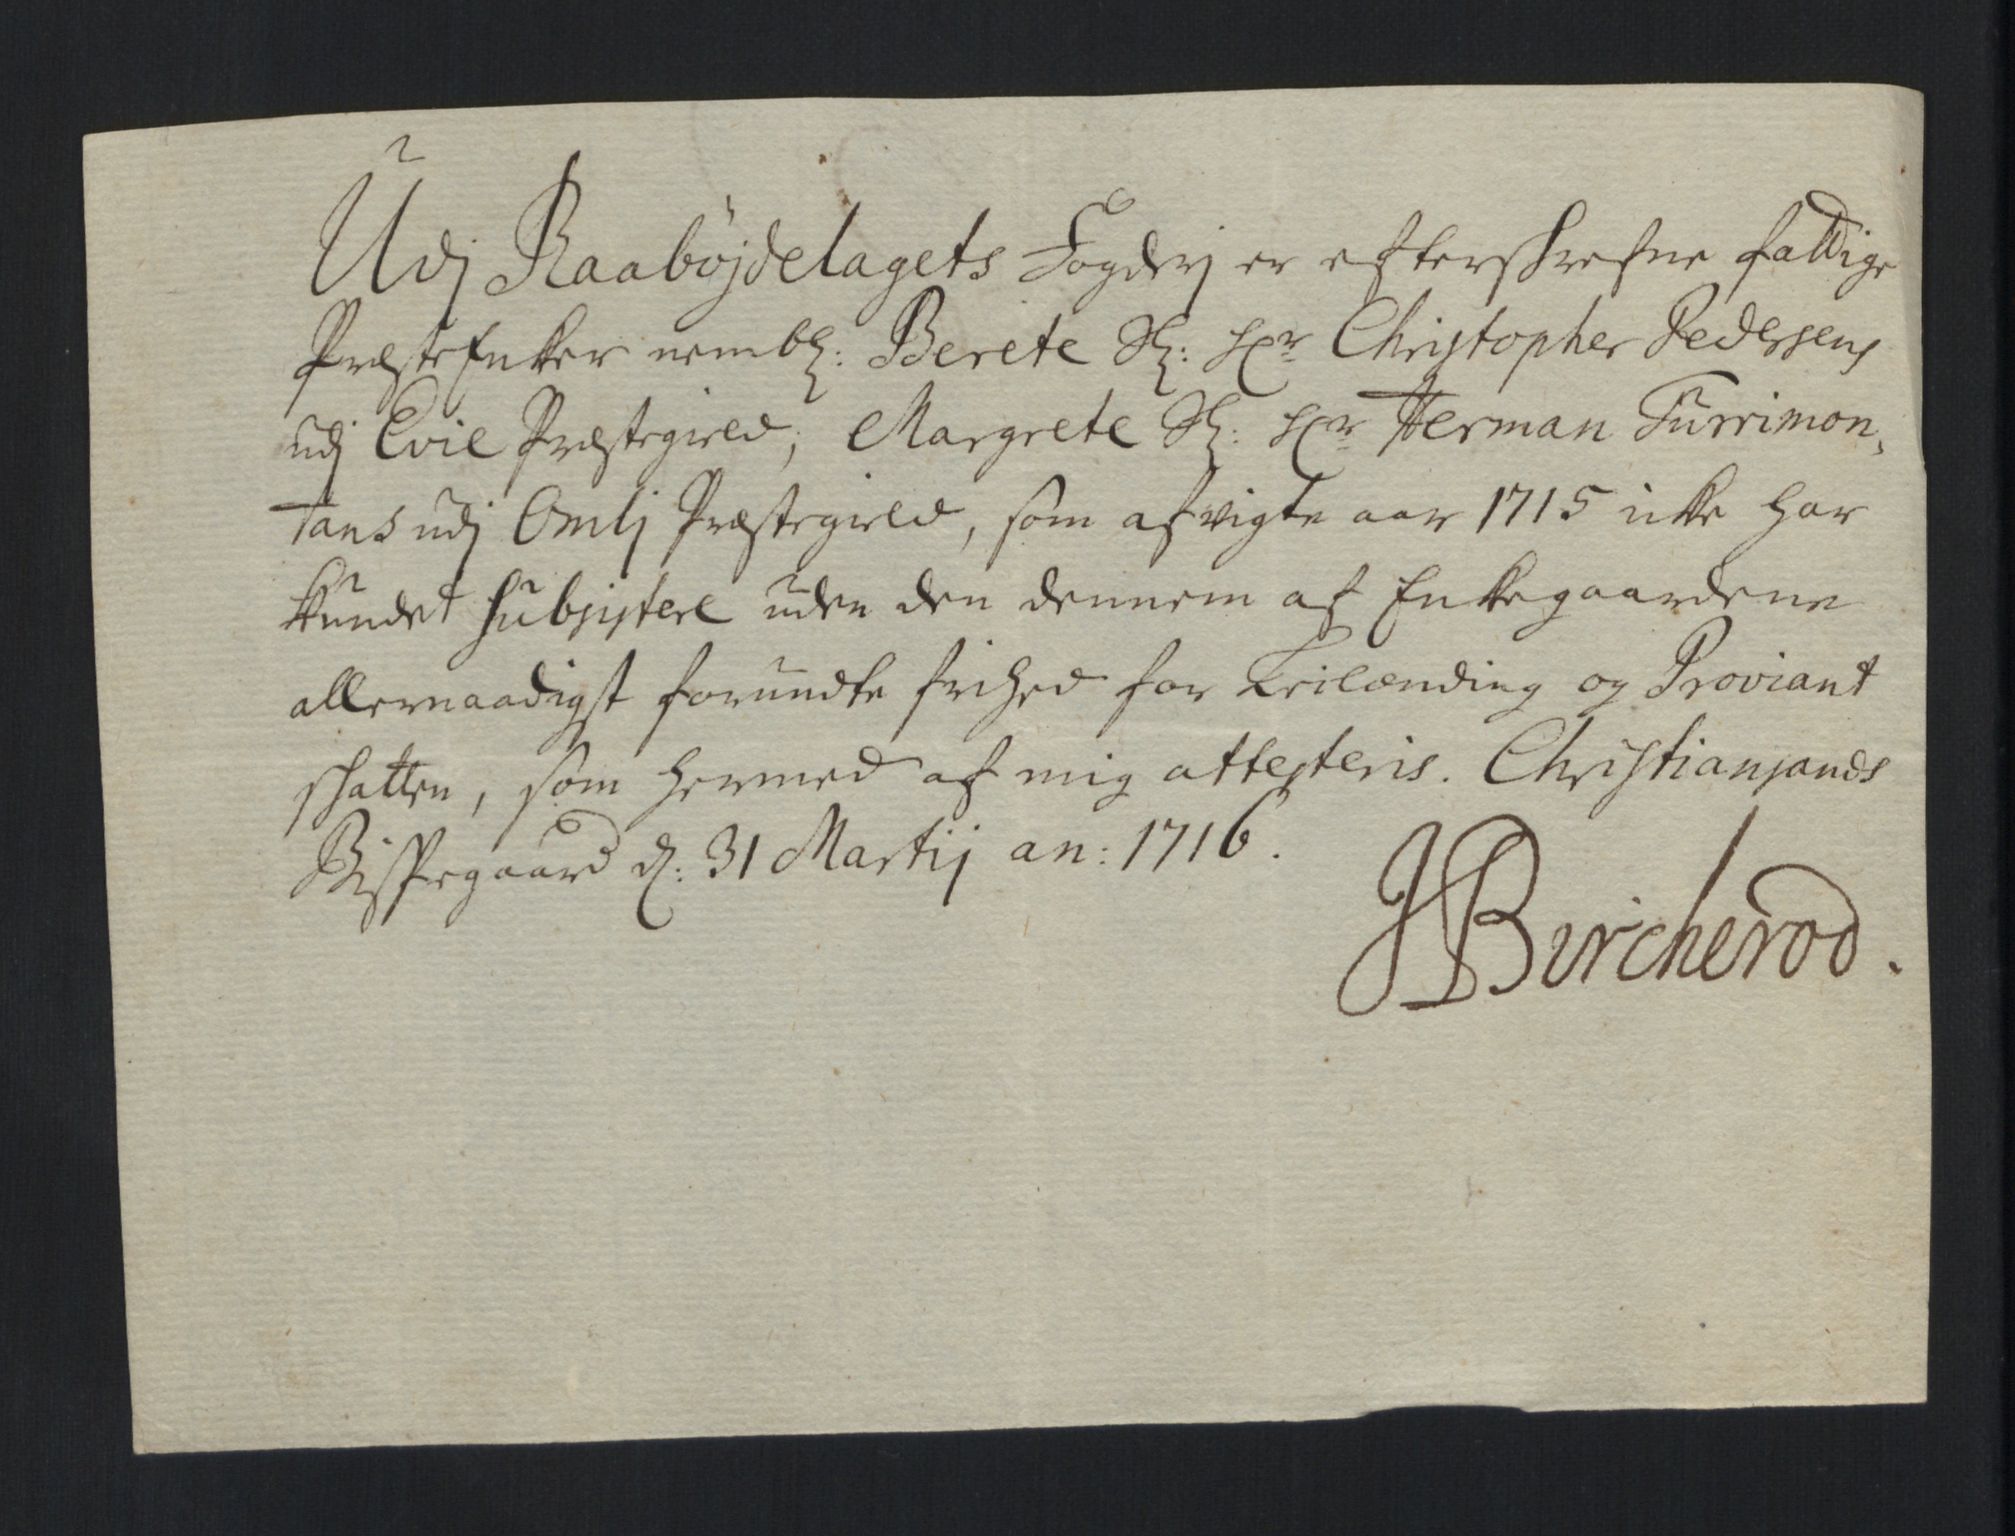 Udj Raabøjdelagets Fogderj er efterskrefne fattige
Præste Enker nembl: Berete Sl: Hr Christopher Pedersens
udj Evie Præstegield, Margrete Sl: Hr Herman Turrimon,
tans udj Omlj Præstegield, som afvigte aar 1715 icke har
kundet subsistere uden den dennem af Enkegaardene
allernaadigst forundte frihed for Leilænding og Proviant
skatten, som hermed af mig attesteris. Christiansands
Bispegaard d: 31 Martij an: 1716.
JBircherod.